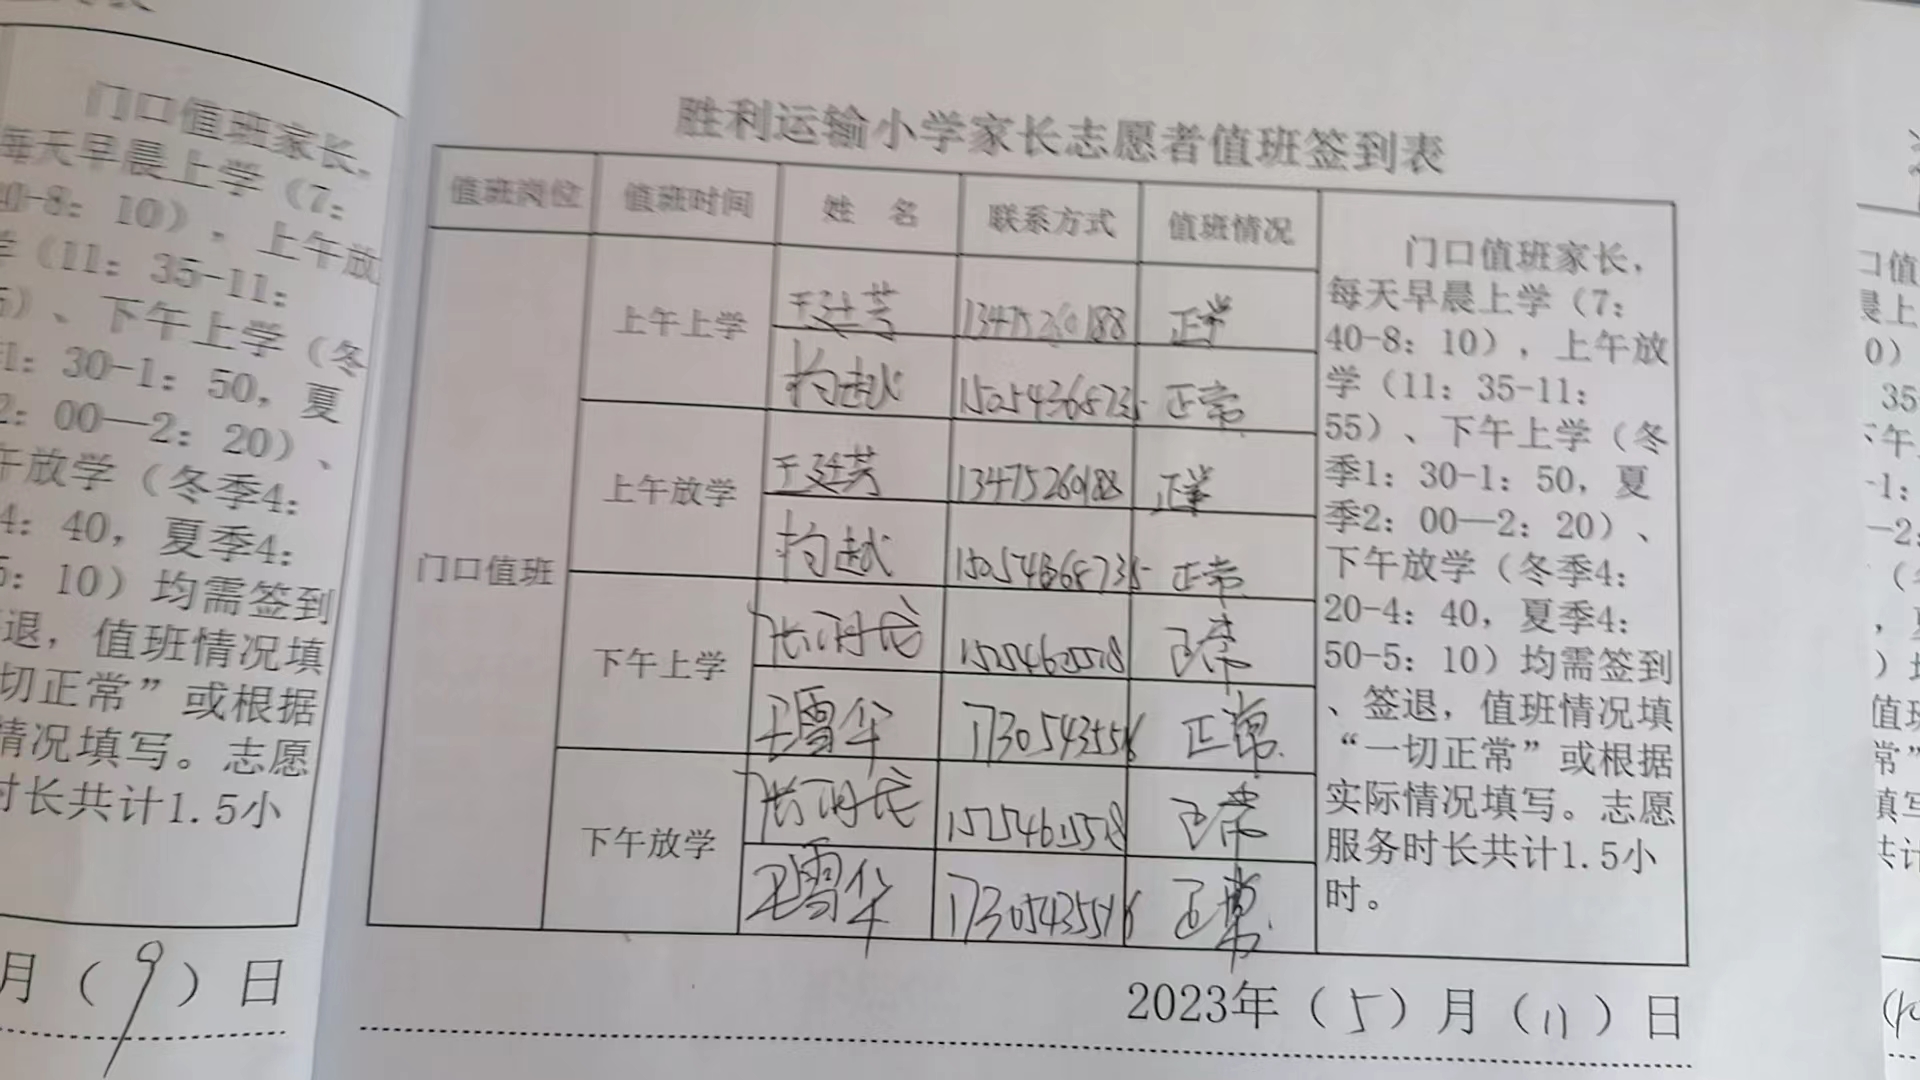 门口值班家长，
每天早晨上学（7：
40-8：10），上午放
学（11：35-11：
、下午上学（冬
1：30-1：50，夏
2：00—2：20）、
午放学（冬季4：
4：40，夏季4：
5：10）均需签到
退，值班情况填
切正常”或根据
情况填写。志愿
时长共计1.5小
月（9）日
胜利运输小学家长志愿者值班签到表
值班岗位 值班时间 姓 名 联系方式 值班情况
门口值班
上午上学 王廷芳 13475260188 正常
越 正常
上午放学 王廷芳 13475260188 正常
越 正常
下午上学 张 正常
王雪华 正常
下午放学 张 正常
王雪华 正常
门口值班家长，
每天早晨上学（7：
40-8：10），上午放
学（11：35-11：
55）、下午上学（冬
季1：30-1：50，夏
季2：00—2：20）、
下午放学（冬季4：
20-4：40，夏季4：
50-5：10）均需签到
、签退，值班情况填
“一切正常”或根据
实际情况填写。志愿
服务时长共计1.5小
时。
2023年（5）月（11）日
口值
晨上
0）
35
下午
-1：
—2：
值班
常”
填写
共计